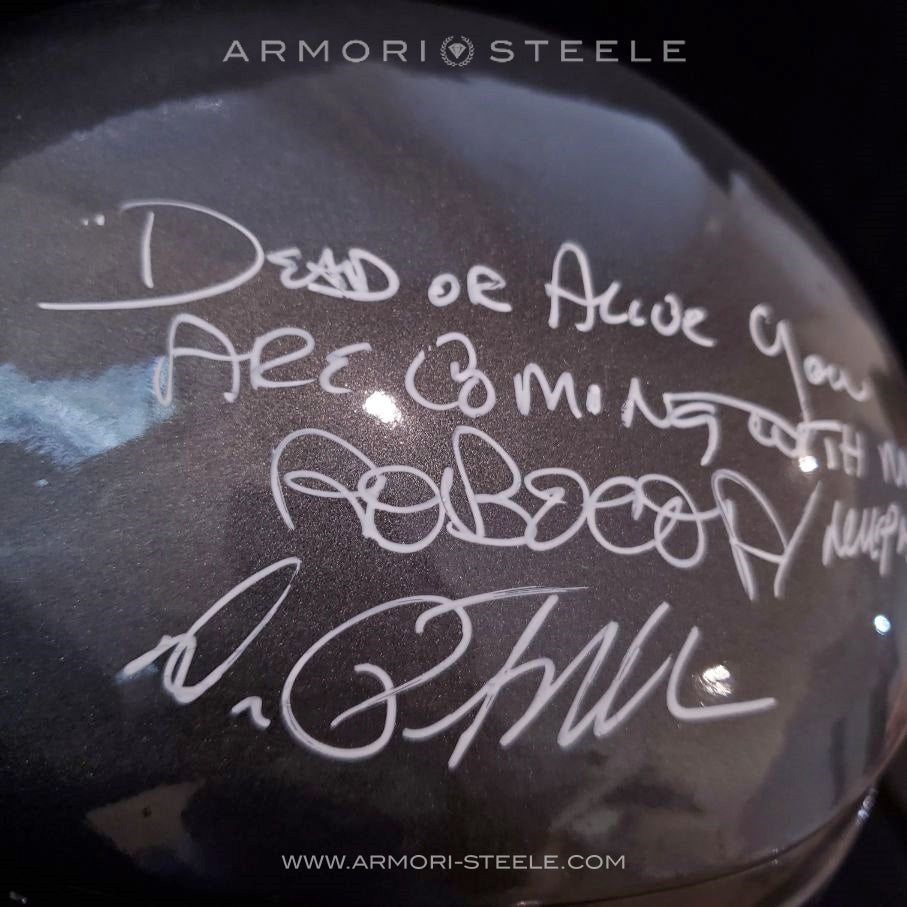 ARMORI STEELE
"DEAD OR ALIVE YOU
ARE COMING WITH M
ROBOCOP/
WWW.ARMORI-STEELE.COM